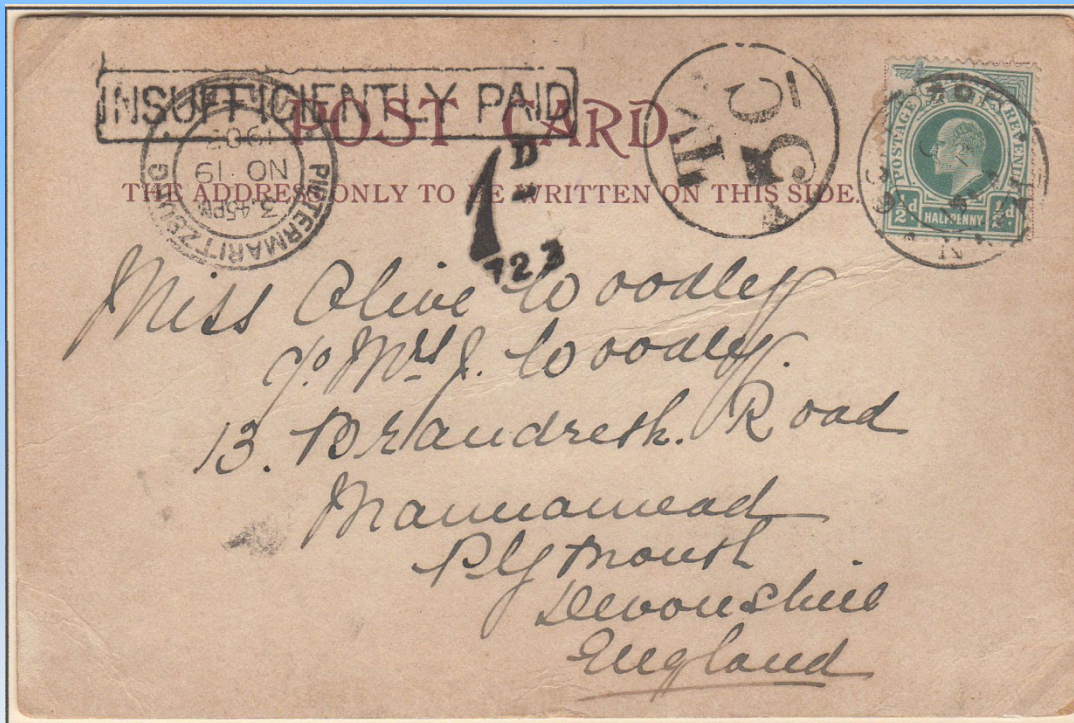 INSUFFICIENTLY PAID
POST CARD.
THE ADDRESS ONLY TO BE WRITTEN ON THIS SIDE.
PIETERMARITZBURG
3.45PM
NO 19
1905
1D
723
T
5C
POSTAGE REVENUE
½d HALFPENNY ½d
Miss Olive Woodley
c/o Mrs J. Woodley.
13. Brandreth. Road
Mannamead
Plymouth
Devonshire
England